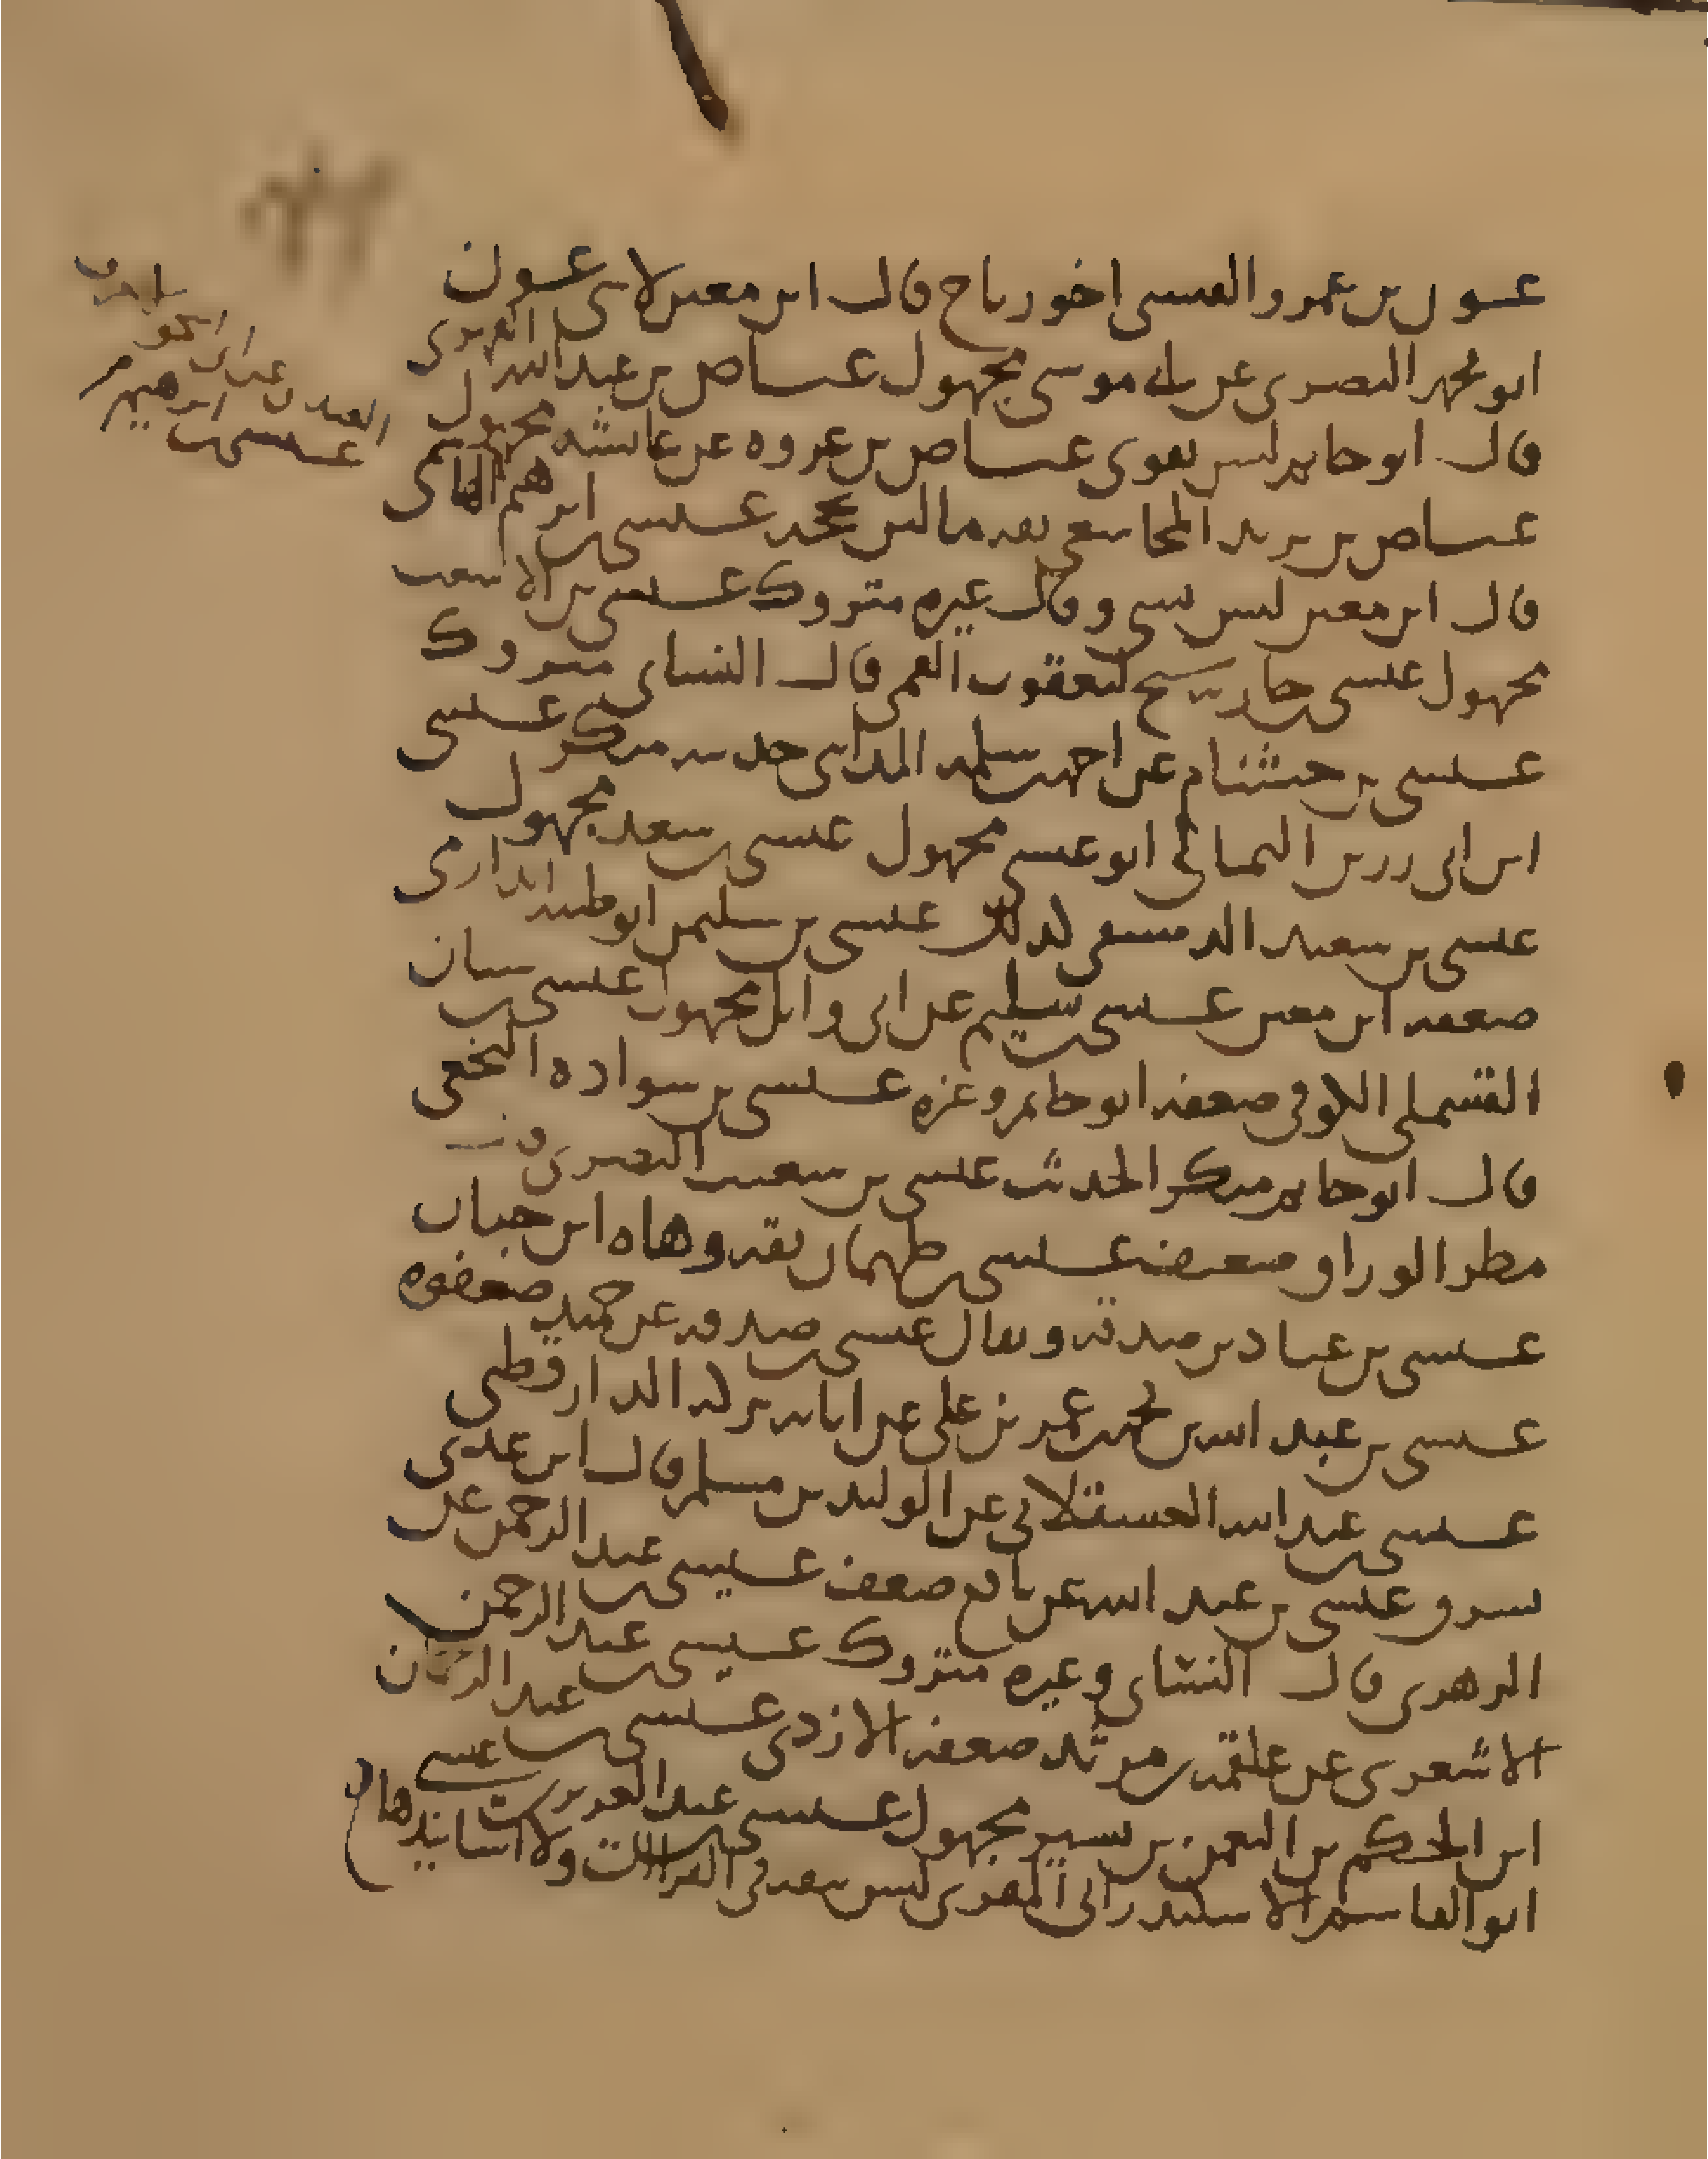 عون بن عمرو القيسي اخو رياح قال ابن معين لا شي عون
ابو محمد البصري عن ابي موسى مجهول عياض بن عبد الله الفهري
قال ابو حاتم ليس بقوي عياض بن عروه عن عائشه مجهول
عياض بن يزيد عيسى بن ابرهيم الهاشمي
قال ابن معين ليس بشي وقال غيره متروك عيسى بن الاشعث
مجهول عيسى بن جاريه شيخ ليعقوب القمي قال النسائي متروك
عيسى بن خشنام عن احمد بن سلمه المدايني حديثه منكر عيسى
ابن ابي رزين الثمالي ابو عيسى مجهول عيسى بن سعيد مجهول
عيسى بن سعيد الدمشقي كذلك عيسى بن سليمن ابو طيبه الداري
ضعفه ابن معين عيسى بن سليم عن ابي وايل مجهول عيسى بن سنان
القسملي ضعفه ابو حاتم وغيره عيسى بن سواده النخعي
قال ابو حاتم منكر الحديث عيسى بن شعيب البصري عن
مطر الوراق ضعيف عيسى بن طهمان ثقه وهاه ابن حبان
عيسى بن عباد بن صدقه ويقال عيسى بن صدقه عن حميد ضعفوه
عيسى بن عبد الله بن محمد بن عمر بن علي عن ابايه تركه الدارقطني
عيسى بن عبد الله العسقلاني عن الوليد بن مسلم قال ابن عدي
يسرق عيسى بن عبد الله عن نافع ضعف عيسى بن عبد الرحمن عن
الزهري قال النسائي وغيره متروك عيسى بن عبد الرحمن
الاشعري عن علقمه بن مرثد ضعفه الازدي عيسى بن عبد الرحمان
ابن الحكم بن النعمن بن بشير مجهول عيسى بن عبد العزيز بن عيسى
ابو القاسم الاسكندراني المقري ليس بثقه في القراات ولا اسانيدها
عيسى بن ابرهيم